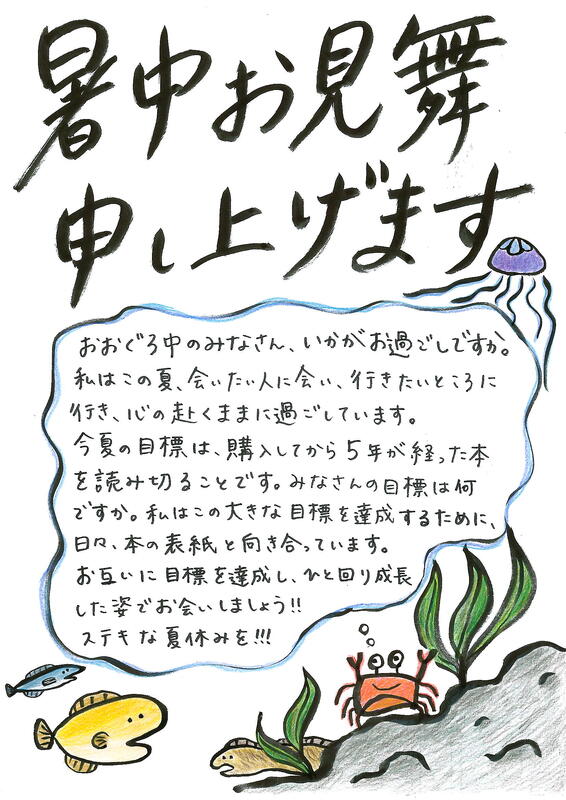 暑中お見舞
申し上げます
おおぐろ中のみなさん、いかがお過ごしですか。
私はこの夏、会いたい人に会い、行きたいところに
行き、心の赴くままに過ごしています。
今夏の目標は、購入してから5年が経った本
を読み切ることです。みなさんの目標は何
ですか。私はこの大きな目標を達成するために、
日々、本の表紙と向き合っています。
お互いに目標を達成し、ひと回り成長
した姿でお会いしましょう!!
ステキな夏休みを!!!